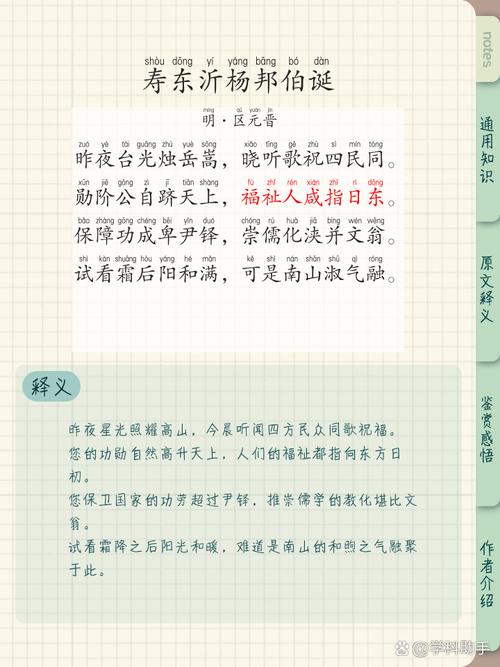 shòu dōng yí yáng bāng bó dàn
寿东沂杨邦伯诞
míng qū yuán jìn
明·区元晋
zuó yè tái guāng zhú yuè sōng xiǎo tīng gē zhù sì mín tóng
昨夜台光烛岳嵩，晓听歌祝四民同。
xūn jiē gōng zì jī tiān shàng fú zhǐ rén xián zhǐ rì dōng
勋阶公自跻天上，福祉人咸指日东。
bǎo zhàng gōng chéng bēi yǐn duó chóng rú huà jiā bìng wén wēng
保障功成卑尹铎，崇儒化浃并文翁。
shì kàn shuāng hòu yáng hé mǎn kě shì nán shān shū qì róng
试看霜后阳和满，可是南山淑气融。
释义
昨夜星光照耀高山，今晨听闻四方民众同歌祝福。
您的功勋自然高升天上，人们的福祉都指向东方日
初。
您保卫国家的功劳超过尹铎，推崇儒学的教化堪比文
翁。
试看霜降之后阳光和暖，难道是南山的和煦之气融聚
于此。
notes
通用知识
原文释义
鉴赏感悟
作者介绍
@学科助手